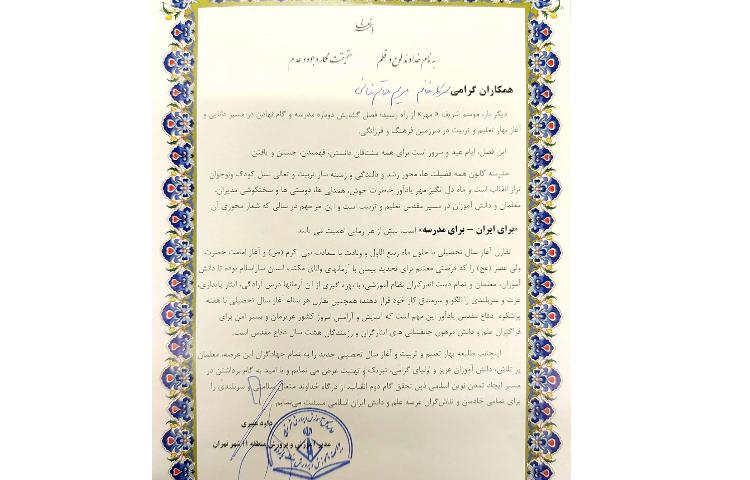 به نام خداوند لوح و قلم حقیقت نگار وجود و عدم
همکاران گرامی سرکار خانم مریم
دیگر بار، موسم شریف «مهر» از راه رسید؛ فصل گشایش دوباره مدرسه و گام نهادن در مسیر دانایی و
آغاز بهار تعلیم و تربیت در سرزمین فرهنگ و فرزانگی.
این فصل، ایام عید و سرور است برای همه مشتاقان دانستن، فهمیدن، جستن و یافتن.
مدرسه کانون همه فضیلت ها، محور رشد و بالندگی و زمینه ساز تربیت و تعالی نسل کودک ونوجوان
تراز انقلاب است و ماه دل انگیز مهر یادآور خاطرات خوش، همدلی ها، دوستی ها و سختکوشی مدیران،
معلمان و دانش آموزان در مسیر مقدس تعلیم و تربیت است و این مهر مهم در سالی که شعار محوری آن
«برای ایران – برای مدرسه» است، بیش از هر زمانی اهمیت می یابد.
تقارن آغاز سال تحصیلی با حلول ماه ربیع الاول و ولادت با سعادت نبی اکرم (ص) و آغاز امامت حضرت
ولی عصر (عج) را که فرصتی مغتنم برای تجدید پیمان با آرمانهای والای مکتب انسان ساز اسلام بوده تا دانش
آموزان، معلمان و تمام دست اندرکاران نظام آموزشی، با بهره گیری از آن آرمانها درس آزادگی، ایثار پایداری،
عزت و سربلندی را الگو و سرمشق کار خود قرار دهند؛ همچنین تقارن هر ساله آغاز سال تحصیلی با هفته
پرشکوه دفاع مقدس یادآور این مهم است که آسایش و آرامش امروز کشور عزیزمان و بستر امن برای
فراگیران علم و دانش مرهون جانفشانی های ایثارگران و رزمندگان هشت سال دفاع مقدس است.
اینجانب طلیعه بهار تعلیم و تربیت و آغاز سال تحصیلی جدید را به تمام جهادگران این عرصه، معلمان
پر تلاش، دانش آموزان عزیز و اولیای گرامی، تبریک و تهنیت عرض می نمایم و با امید به گام برداشتن در
مسیر ایجاد تمدن نوین اسلامی ذیل تحقق گام دوم انقلاب، از درگاه خداوند متعال سلامتی و سربلندی را
برای تمامی خادمان و تلاش‌گران عرصه علم و دانش ایران اسلامی مسئلت می‌نمایم.
داود
مدیر آموزش و پرورش منطقه ۱۱ شهر تهران